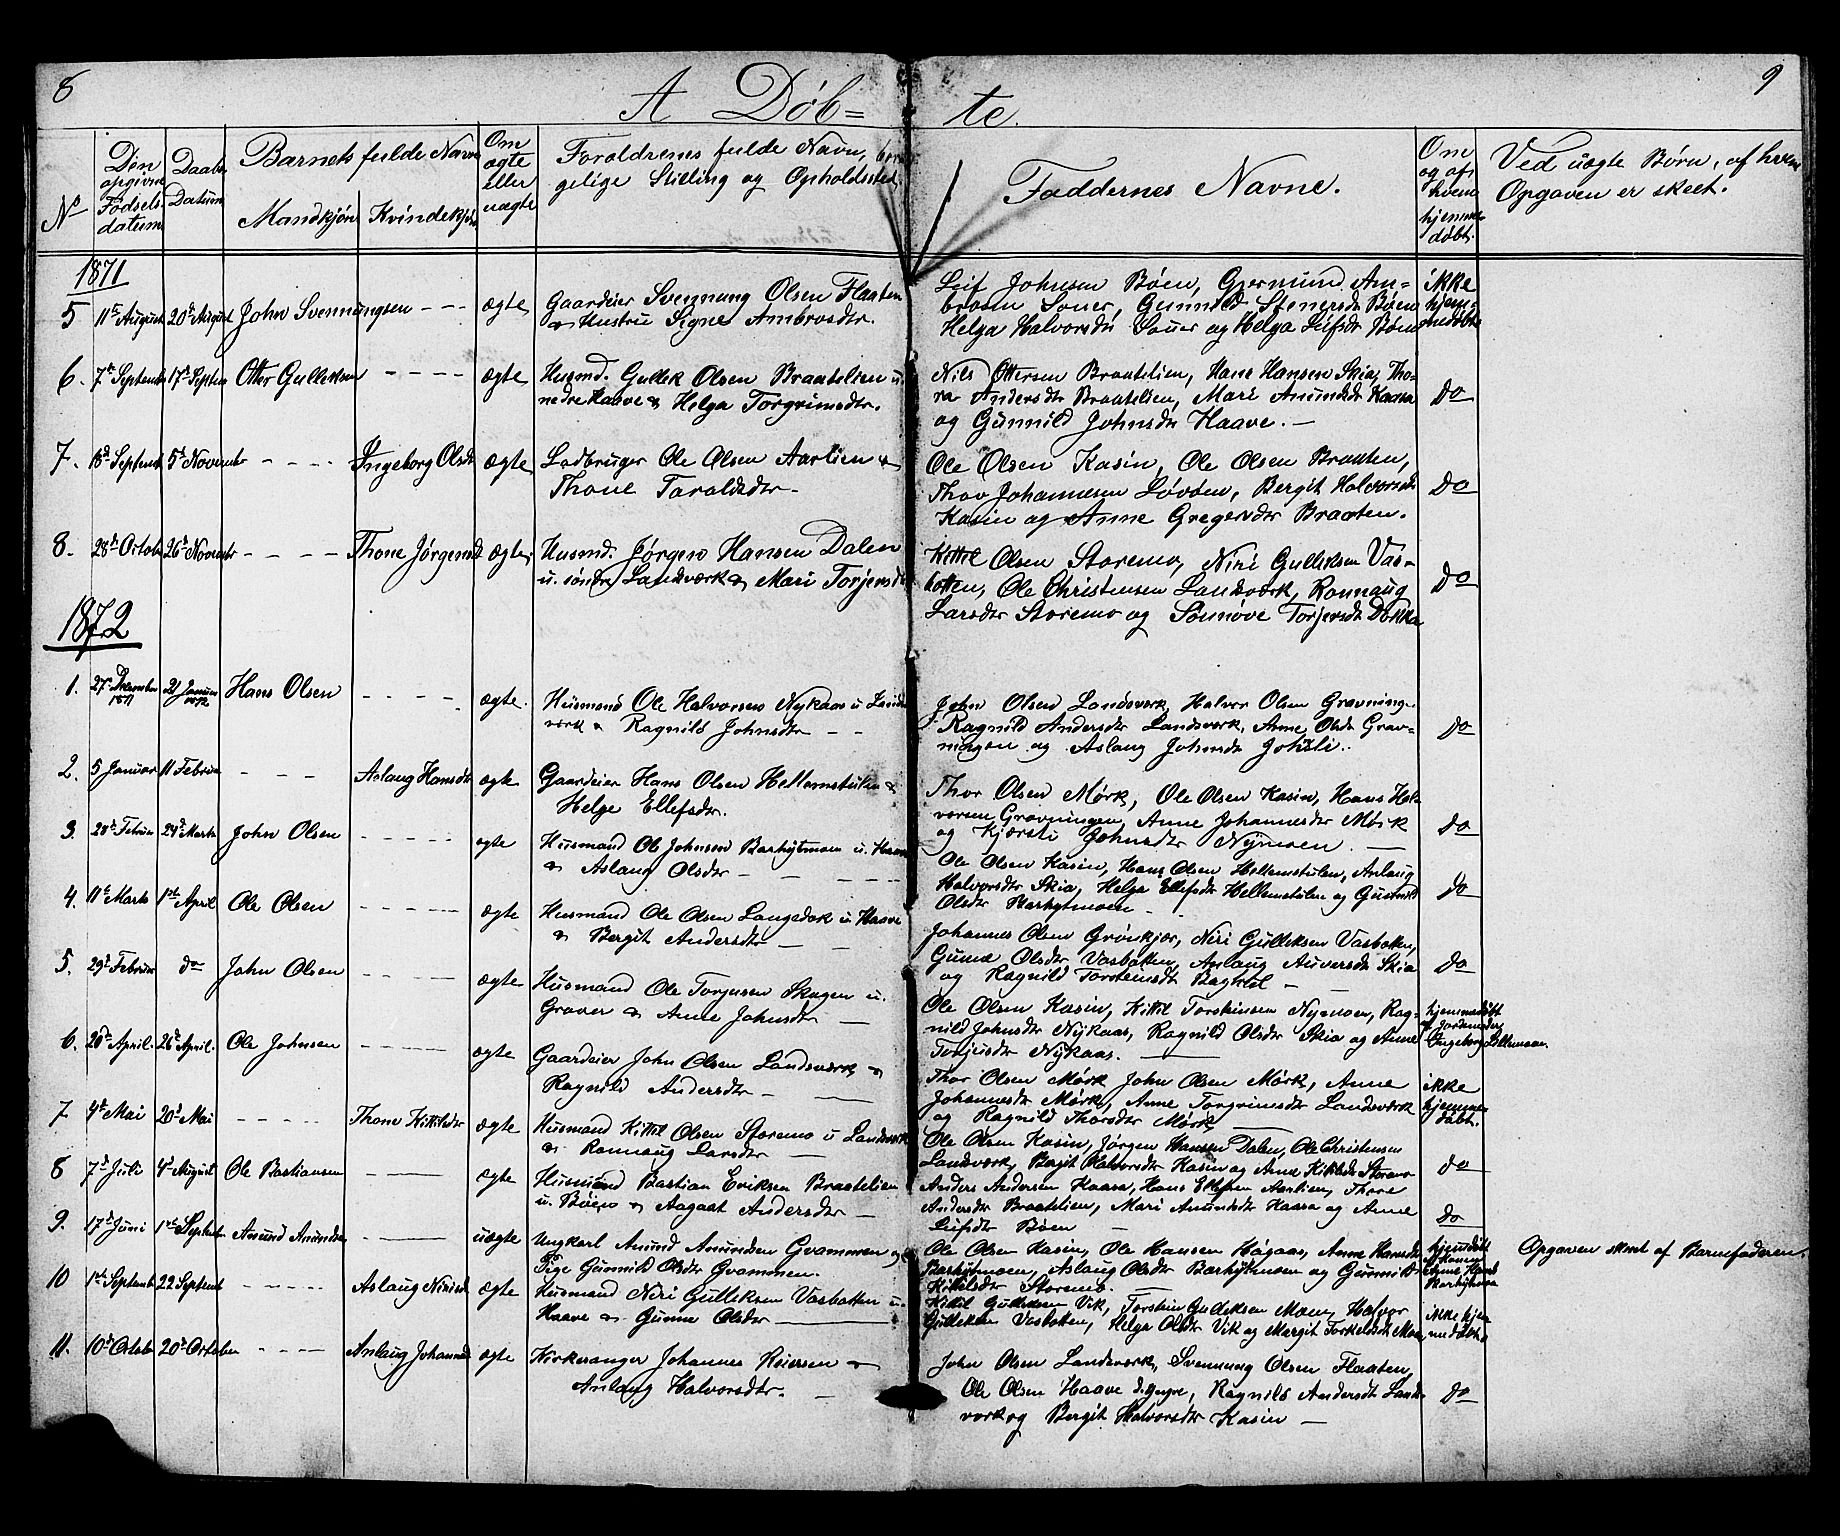 8
9
A Døb=
te.
No
Den opgivne Fødsels datum
Daabs Datum
Barnets fulde Navn
Mandkjøn
Kvindekjøn
Om ægte eller uægte
Forældrenes fulde Navn, bor-
gelige Stilling og Opholdssted.
Faddernes Navne.
Om og af hvem hjemme døbt.
Ved uægte Børn, af hvem
Opgaven er skeet.
1871
5 11te August 20de August John Svennungsen - - - ægte Gaardeier Svennung Olsen Flaaten
& Hustru Signe Ambrosdtr.
Leif Johnsen Bøen, Gjermund Am-
brosen Souer, Gunnild Stengersdtr Bøen
Helga Halvorsdtr Souer og Helga Leifsdtr Bøen
ikke hjem-medøbt
6. 7de Septembr 17de Septem Otter Gulleksen - - - - ægte Husmd. Gullek Olsen Braatelien u.
nedre Haave & Helga Torgrimsdtr.
Nils Ottersen Braatelien, Hans Hansen Skia, Tho-
ra Andersdtr Braatelien, Mari Anundsdtr Kaasa
og Gunnild Johnsdtr Haave. -
do
7. 18de Septemb 5te Novembr - - - - Ingeborg Olsdtr ægte Ledbruger Ole Olsen Aarlien &
Thone Taraldsdtr -
Ole Olsen Kasin, Ole Olsen Braaten,
Thov Johannesen Løvøen, Bergit Halvorsdtr
Kasin og Anne Gregersdtr Braaten.
do
8. 28de Octob 26de Novembr - - - - Thone Jørgensdtr ægte Husmd. Jørgen Hansen Dalen
u. søndre Landsværk & Mari Torjersdtr
Kittil Olsen Storemo, Niri Gulleksen Vas-
botten, Ole Christensen Landsværk, Ronnaug
Larsdtr Storemo og Sønnøve Torjersdtr Dokka
do
1872
1. 27de December 1871 21 Januar 1872 Hans Olsen - - - - ægte. Husmand Ole Halvorsen Nykaas u Lands
værk & Ragnild Johnsdtr - -
John Olsen Landsverk, Halvor Olsen Gravning-
Ragnild Andersdtr Landsverk, Anne Olsdtr Grav-
ningen og Aslaug Johnsdtr Johsli.
do
2. 5 Januar 11 Februar - - - Aslaug Hansdtr ægte Gaardeier Hans Olsen Hellemstulen &
Helge Ellefsdtr.
Thor Olsen Mørk, Ole Olsen Kasin, Hans Hal-
vorsen Gravningen, Anne Johannesdtr Mørk
og Kjersti Johnsdtr Nymoen. -
do
3. 28de Februar 24de Marts John Olsen - - - - - ægte Husmand Ole Johnsen Barhytmoen u. Haave
& Aslaug Olsdtr - - - - -
Ole Olsen Kasin, Hans Olsen Hellemstulen, Aslaug
Halvorsdtr Skia, Helga Ellefsdtr Hellemstulen og Gunnild
Olsdtr Barhytmoen -
do
4. 11te Marts 1ste April Ole Olsen - - - - - ægte Husmand Ole Olsen Langedok u. Haave
& Bergit Andersdtr - -
Johannes Olsen Grönkjær, Niri Gulleksen Vasbotten,
Gunne Olsdtr Vasbotten, Aslaug Auversdtr Skia
og Ragnild Torsteinsdtr -
do
5. 29de Februar do John Olsen - - - - ægte Husmand Ole Torjusen Skogen u.
Graver & Anne Johnsdtr -
Ole Olsen Kasin, Kittil Torsteinsen Nymoen, Rag-
nild Johnsdtr Nykaas, Ragnild Olsdtr Skia og Anne
Torjusdtr Nykaas. -
hjemmedøbt af Jordemoder Ingeborg Lillemoen.
6. 20de April. 26de April. Ole Johnsen - - - - ægte Gaardeier John Olsen Landsværk &
Ragnild Andersdtr - -
Thor Olsen Mørk John Olsen Mørk, Anne
Johannesdtr Mørk, Anne Torgrimsdtr Landsværk
og Ragnild Thorsdtr Mørk -
ikke hjemme døbt.
7 4de Mai 20de Mai - - - - - Thone Kittilsdtr ægte Husmand Kittil Olsen Storemo u Landsverk
& Ronnaug Larsdtr -
Ole Olsen Kasin, Jørgen Hansen Dalen, Ole Christensen
Landsværk, Bergit Halvorsdtr Kasin og Anne Kittilsdtr Storemo
do
8 7de Juli 4de August Ole Bastiansen - - - ægte Husmand Bastian Eriksen Braatelien
u. Bøen & Aagaat Andersdtr -
Anders Andersen Kaasa, Hans Ellefsen Aarlien, Thore
Andersdtr Braatelien, Mari Anundsdtr Kaasa og Anne
Leifsdtr Bøen -
do
9. 17de Juni 1ste Septembr Anund Anundsen - - - uægte Ungkarl Anund Anundsen Gvammen og
Pige Gunnild Olsdtr Gvammen.
Ole Olsen Kasin, Ole Hansen Høgaas, Anne Hansdtr
Barhytmoen, Aslaug Olsdtr Barhytmoen og Gunnild
Kittilsdtr Storemo. -
hjemdøbt af Kone Anne Hansd Barhytmoen
Opgaven skeet af Barnefaderen.
10 1ste Septemb 22 Septemb - - - - Aslaug Nirisdtr ægte Husmand Niri Gulleksen Vasbotten u.
Haave & Gunne Olsdtr -
Kittil Gulleksen Vik, Torstein Gulleksen Moen, Halvor
Gulleksen Vasbotten, Helga Olsdtr Vik og Margit Torkelsdtr Moen
ikke hjem medøbt
11. 10de Octobr 20de October - - - - Aslaug Johannesdtr ægte Kirkesanger Johannes Reiersen &
Aslaug Halvorsdtr. -
John Olsen Landsværk, Svennung Olsen Flaaten,
Ole Olsen Haave d.yngre, Ragnild Andersdtr Lands-
værk og Bergit Halvorsdtr Kasin -
do